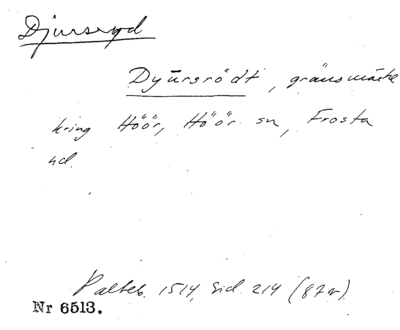 Djursryd
Dyūrsrödt, gränsmärke
kring Höör, Höör sn, Frosta
hd.
Palteb. 1514, sid. 214 (87r).
Nr 6513.